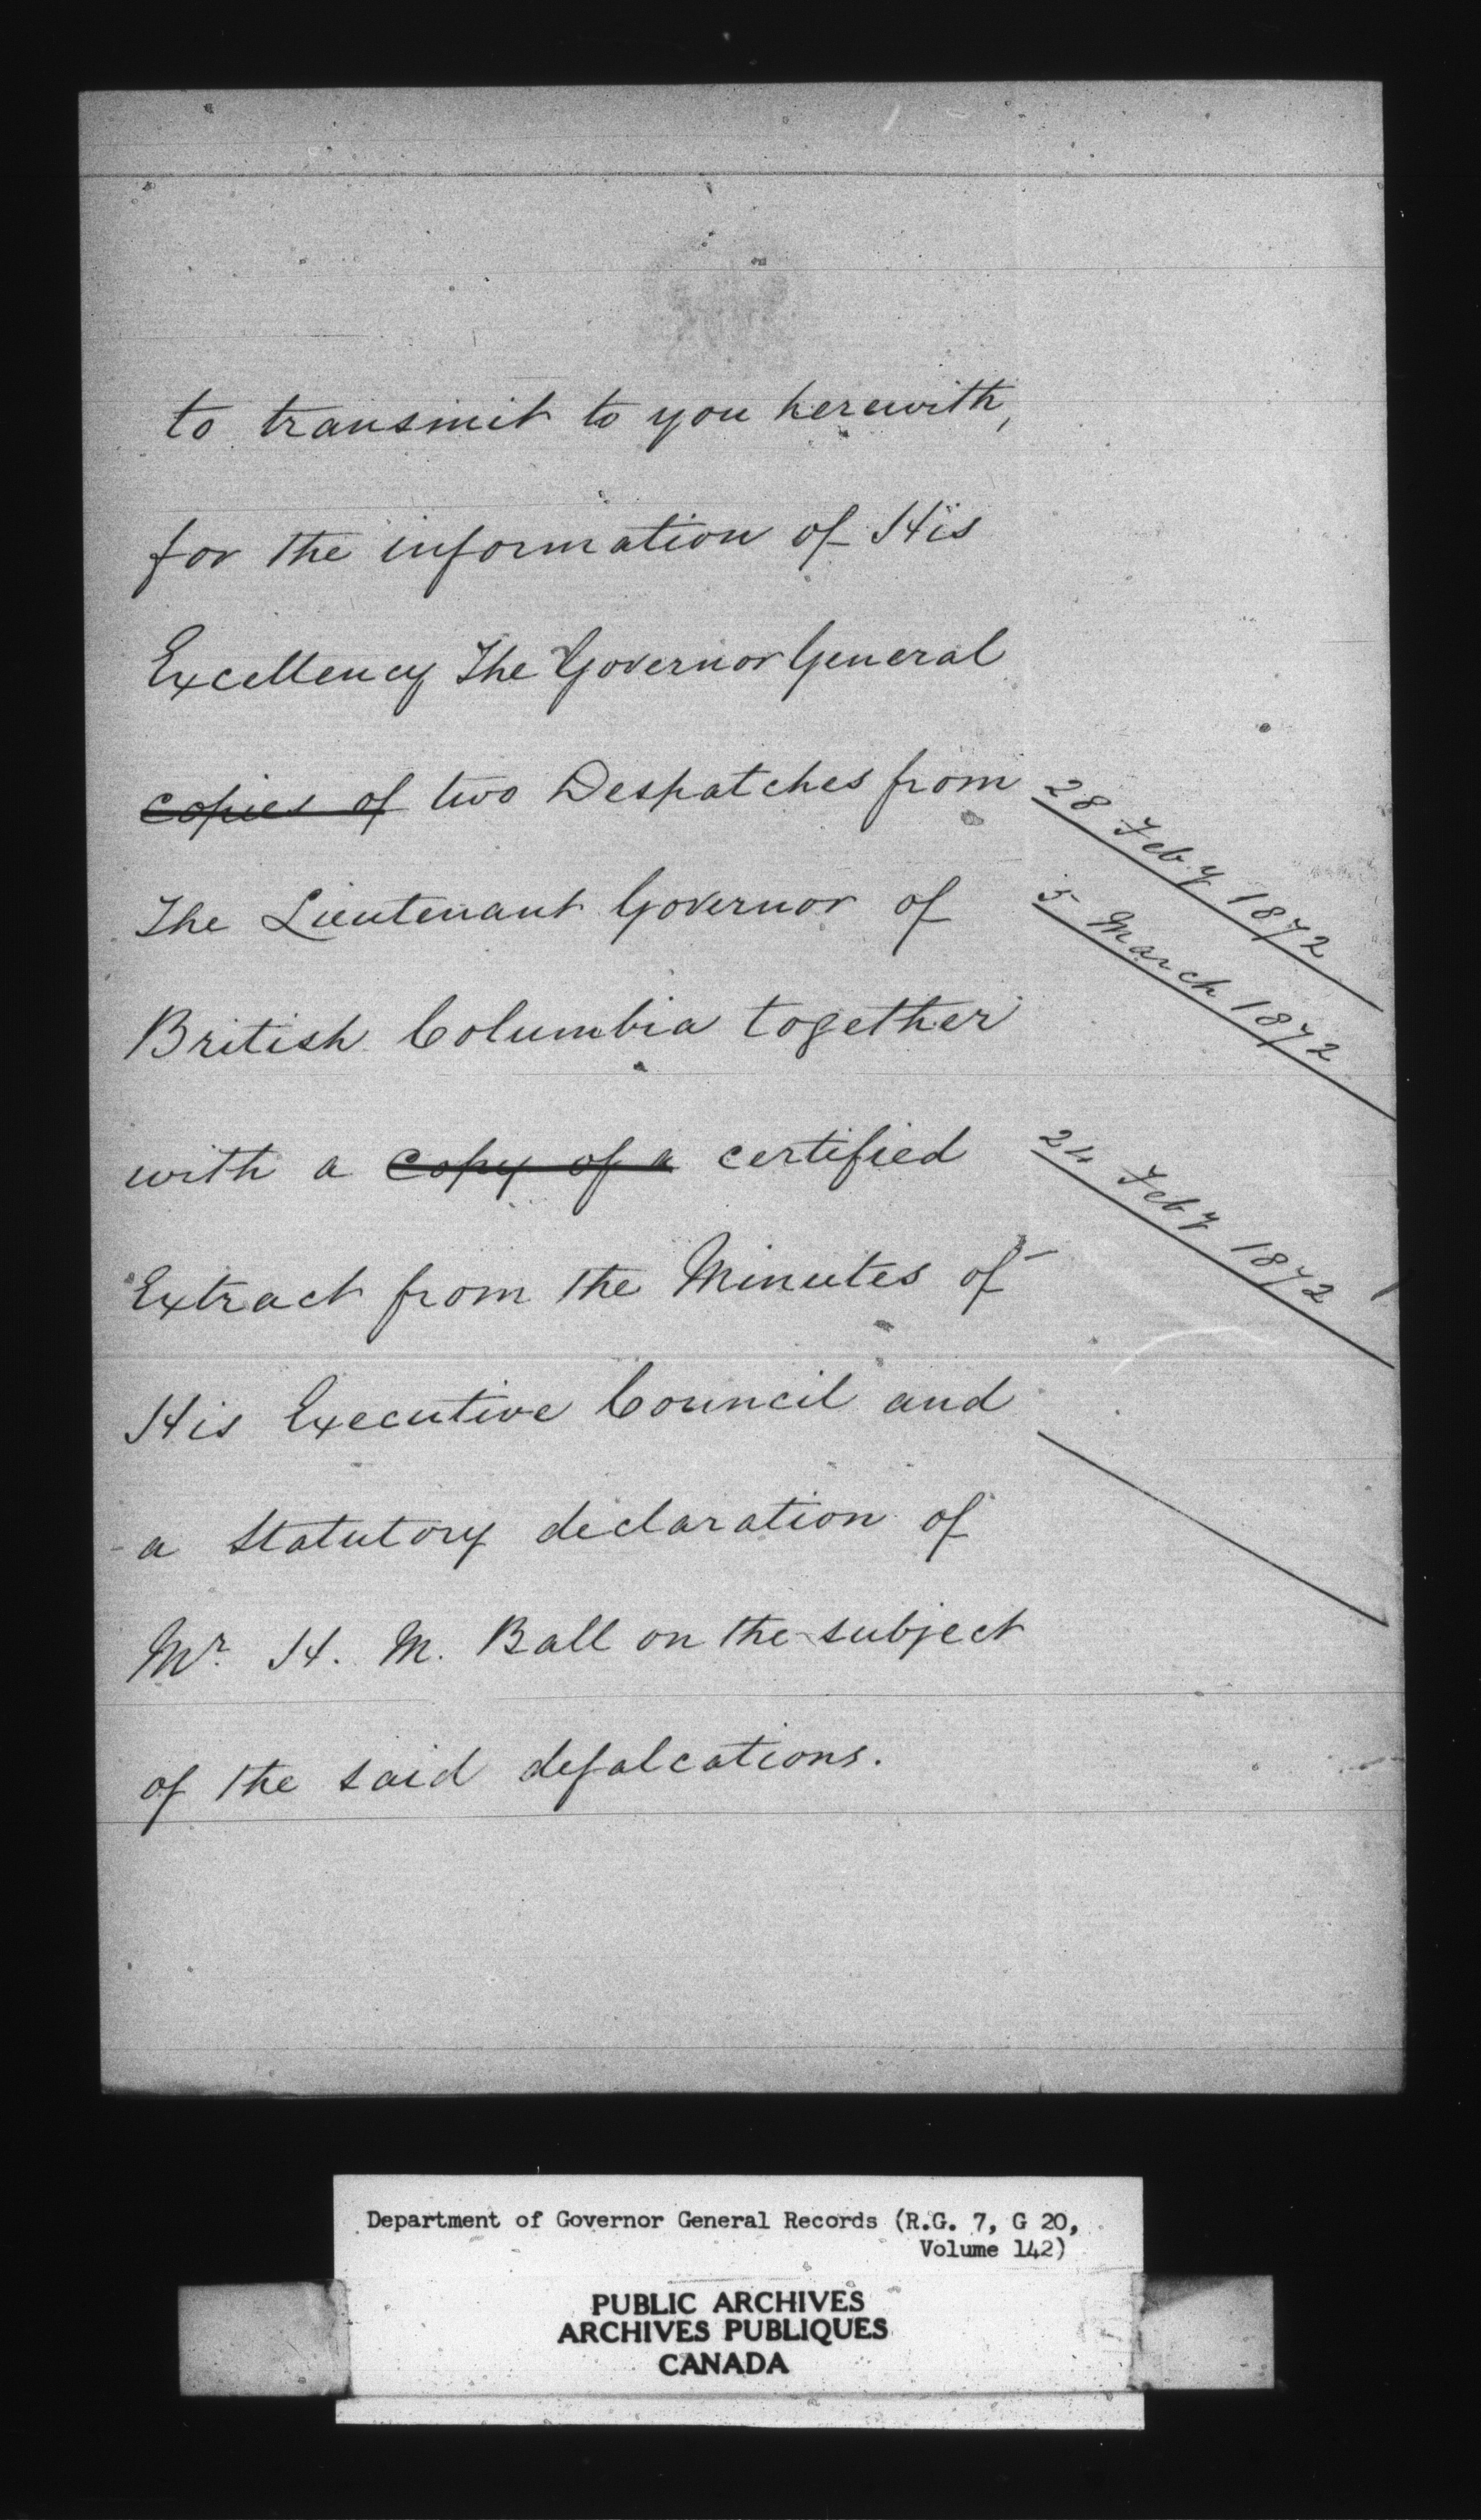 to transmit to you herewith,
for the information of His
Excellency The Governor General
copies of two Despatches from
28 Feby 1872
The Lieutenant Governor of
5 March 1872
British Columbia together
with a copy of a certified
24 Feby 1872
Extract from the Minutes of
His Executive Council and
a Statutory declaration of
Mr. H. M. Ball on the subject
of the said defalcations.
Department of Governor General Records (R.G. 7, G 20,
Volume 142)
PUBLIC ARCHIVES
ARCHIVES PUBLIQUES
CANADA